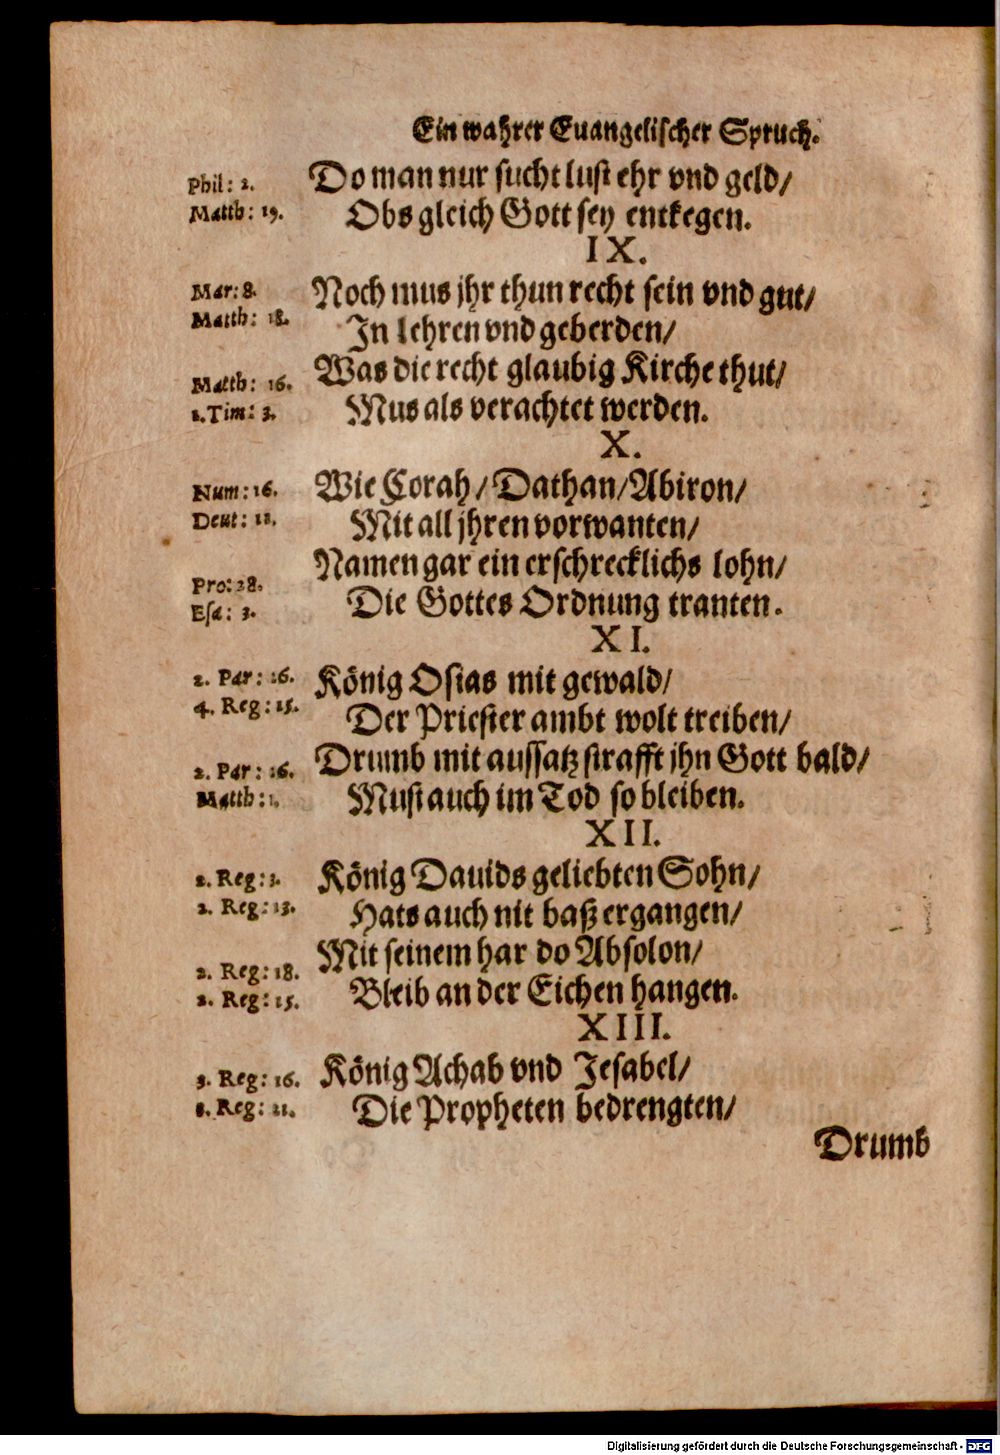 Ein wahrer Euangelischer Spruch.
Phil: 2. Do man nur sucht lust ehr vnd geld/
Matth: 19. Obs gleich Gott sey entkegen.
IX.
Mar: 8. Noch mus jhr thun recht sein vnd gut/
Matth: 18. In lehren vnd geberden/
Matth: 16. Was die recht glaubig Kirche thut/
1. Tim: 3. Mus als verachtet werden.
X.
Num: 16. Wie Corah/ Dathan/ Abiron/
Deut: 11. Mit all jhren vorwanten/
Namen gar ein erschrecklichs lohn/
Pro: 28.
Esa: 3. Die Gottes Ordnung tranten.
XI.
2. Par: 26. König Osias mit gewald/
4. Reg: 15. Der Priester ambt wolt treiben/
2. Par: 26. Drumb mit aussatz strafft jhn Gott bald/
Matth: 1. Must auch im Tod so bleiben.
XII.
2. Reg: 3. König Dauids geliebten Sohn/
2. Reg: 13. Hats auch nit baß ergangen/
2. Reg: 18. Mit seinem har do Absolon/
2. Reg: 15. Bleib an der Eichen hangen.
XIII.
3. Reg: 16. König Achab vnd Jesabel/
Reg: 21. Die Propheten bedrengten/
Drumb
Digitalisierung gefördert durch die Deutsche Forschungsgemeinschaft - DFG